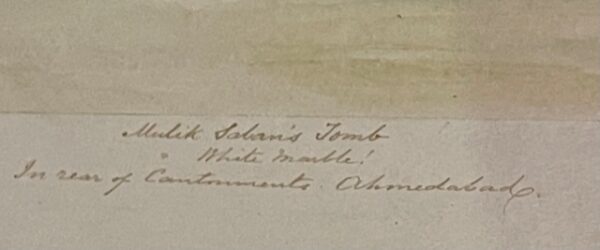 Mulik Saban's Tomb
White Marble!
In rear of Cantonments. Ahmedabad.